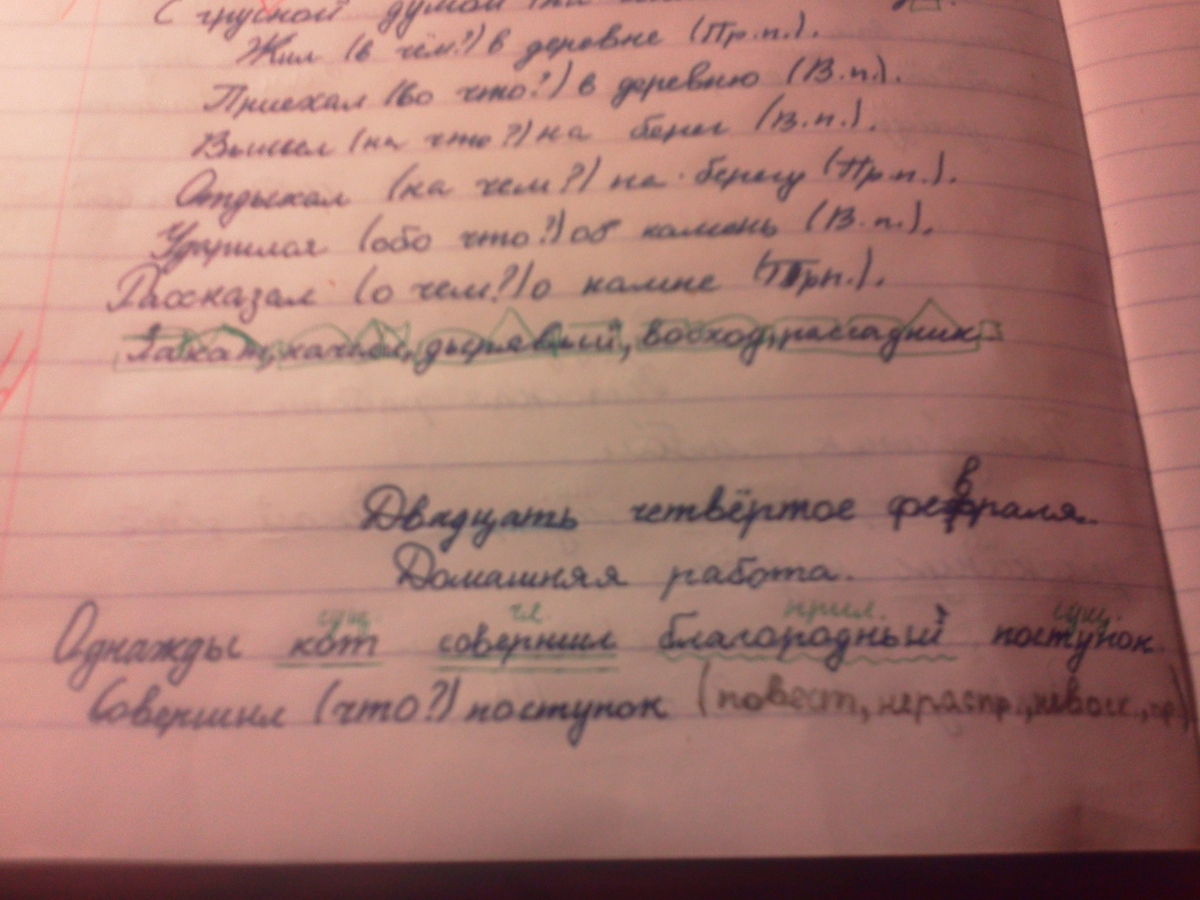 С грустной думой
Жил (в чём?) в деревне (Пр.п.).
Приехал (во что?) в деревню (В.п.).
Вышел (на что?) на берег (В.п.).
Отдыхал (на чем?) на берегу (Пр.п.).
Ударился (обо что?) об камень (В.п.).
Рассказал (о чем?) о камне (Пр.п.).
Закат, качели, дырявый, восход, рассадник
Двадцать четвёртое февраля.
Домашняя работа.
сущ. гл. прил. сущ.
Однажды кот совершил благородный поступок.
Совершил (что?) поступок (повест, нераспр., невоск.,